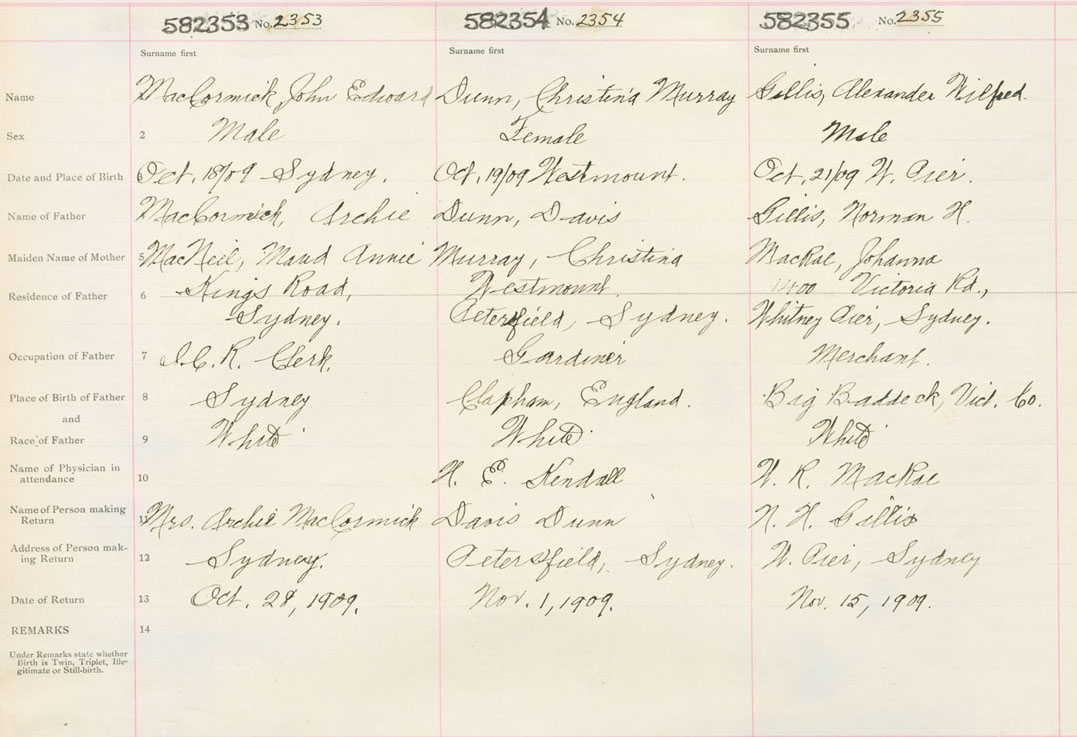 582353 No. 2353 582354 No. 2354 582355 No. 2355
Surname first Surname first Surname first
Name MacCormick, John Edward Dunn, Christina Murray Gillis, Alexander Wilfred.
Sex 2 Male Female Male
Date and Place of Birth Oct. 18/09 Sydney. Oct, 19/09 Westmount. Oct, 21/09 W. Pier.
Name of Father MacCormick, Archie Dunn, Davis Gillis, Norman H.
Maiden Name of Mother 5 MacNeil, Maud Annie Murray, Christina MacRae, Johanna
Residence of Father 6 Kings Road, Westmount. Victoria Rd.,
Sydney. Petersfield, Sydney. Whitney Pier, Sydney.
Occupation of Father 7 I.C.R. Clerk. Gardiner Merchant.
Place of Birth of Father 8 Sydney Clapham, England. Big Baddeck, Vict. Co.
and
Race of Father 9 White White White
Name of Physician in
attendance 10 H. E. Kendall W. R. MacRae
Name of Person making
Return 11 Mrs. Archie MacCormick Davis Dunn N. H. Gillis
Address of Person mak-
ing Return 12 Sydney. Petersfield, Sydney. W. Pier, Sydney
Date of Return 13 Oct. 28, 1909. Nov. 1, 1909. Nov. 15, 1909.
REMARKS 14
Under Remarks state whether
Birth is Twin, Triplet, Ille-
gitimate or Still-birth.